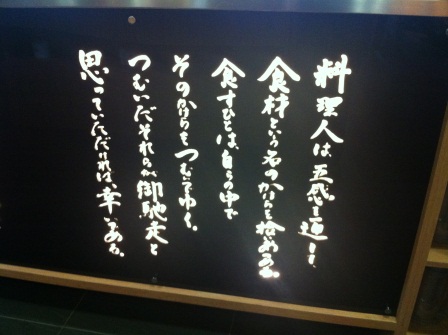 料理人は、五感を通して、
食材という名のかけらを拾いあつめる。
食すひとは、自らの中で
そのかけらをつむいでゆく。
つむいだそれらが御馳走と
思っていただければ、幸いである。